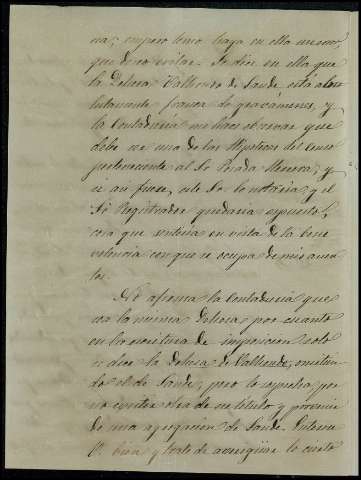 na; empero temo haya en ella un error,
que deseo evitar. Se dice en ella que
la Dehesa Vallhondo de Sande está abso
lutamente franca de gravámenes, y
la Contaduría me hace observar que
debe ser una de las Hipotecas del Censo
perteneciente al Sr Posada Herrera; y
si así fuese, este Sr, la notaría, y el
Sr Registrador quedaría espuesto,
cosa que sentiría en vista de la bene
volencia con que se ocupa de mis asun
tos.
No afirma la Contaduría que
sea la misma Dehesa, por cuanto
en la escritura de imposicion solo
se dice la Dehesa de Vallhondo, omitien
do el de Sande; pero lo sospecha, por
no existir otra de su título y provenir
de una agregacion de Sande. Entérese
V. bien y trate de averiguar lo cierto